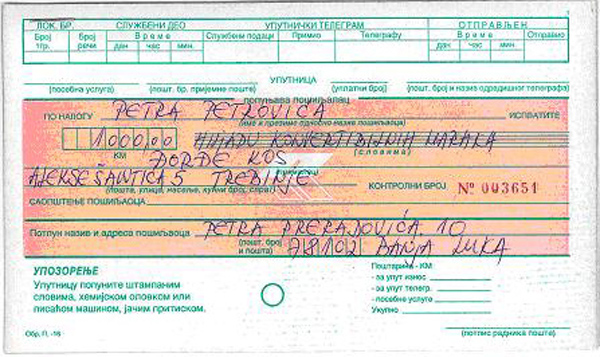 ЛОК. БР. СЛУЖБЕНИ ДЕО УПУТНИЧКИ ТЕЛЕГРАМ ОТПРАВЉЕН
Број тгр. Број речи Време дан час мин Службени подаци Примио Телеграфу Време дан час мин Отправио
УПУТНИЦА
(посебна услуга) (пошт. бр. пријемне поште) (уплатни број) (број и назив одредишног телеграфа)
попуњава пошиљалац
ПО НАЛОГУ PETRA PETROVIĆA ИСПЛАТИТЕ
(име и презиме односно назив пошиљаоца)
1000,00 HILJADU KONVERTIBILNIH MARAKA
КМ (словима)
ĐORĐE KOS
ALEKSE ŠANTIĆA 5 TREBINJE КОНТРОЛНИ БРОЈ № 003651
(пошта, улица, насеље, кућни број, спрат)
САОПШТЕЊЕ ПОШИЉАОЦА
Потпун назив и адреса пошиљаоца PETRA PRERADOVIĆA 10
(пошт. број и пошта) 78102 BANJA LUKA
УПОЗОРЕЊЕ
Упутницу попуните штампаним
словима, хемијском оловком или
писаћом машином, јачим притиском.
Поштарина - КМ
- за упут износ
- за упут телегр.
- посебне услуге
Укупно
(потпис радника поште)
Обр. П. -16